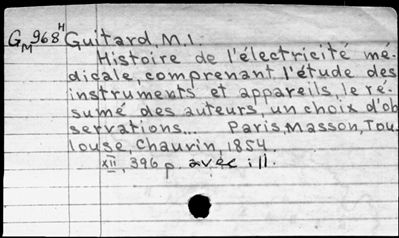 G_M 968^H Guitard, M.I.
Histoire de l'électricité mé-
dicale, comprenant l'étude des
instruments et appareils, le ré-
sumé des auteurs, un choix d'ob
servations... Paris, Masson, Tou-
louse, Chauvin, 1854.
XII, 396 p. avec ill.